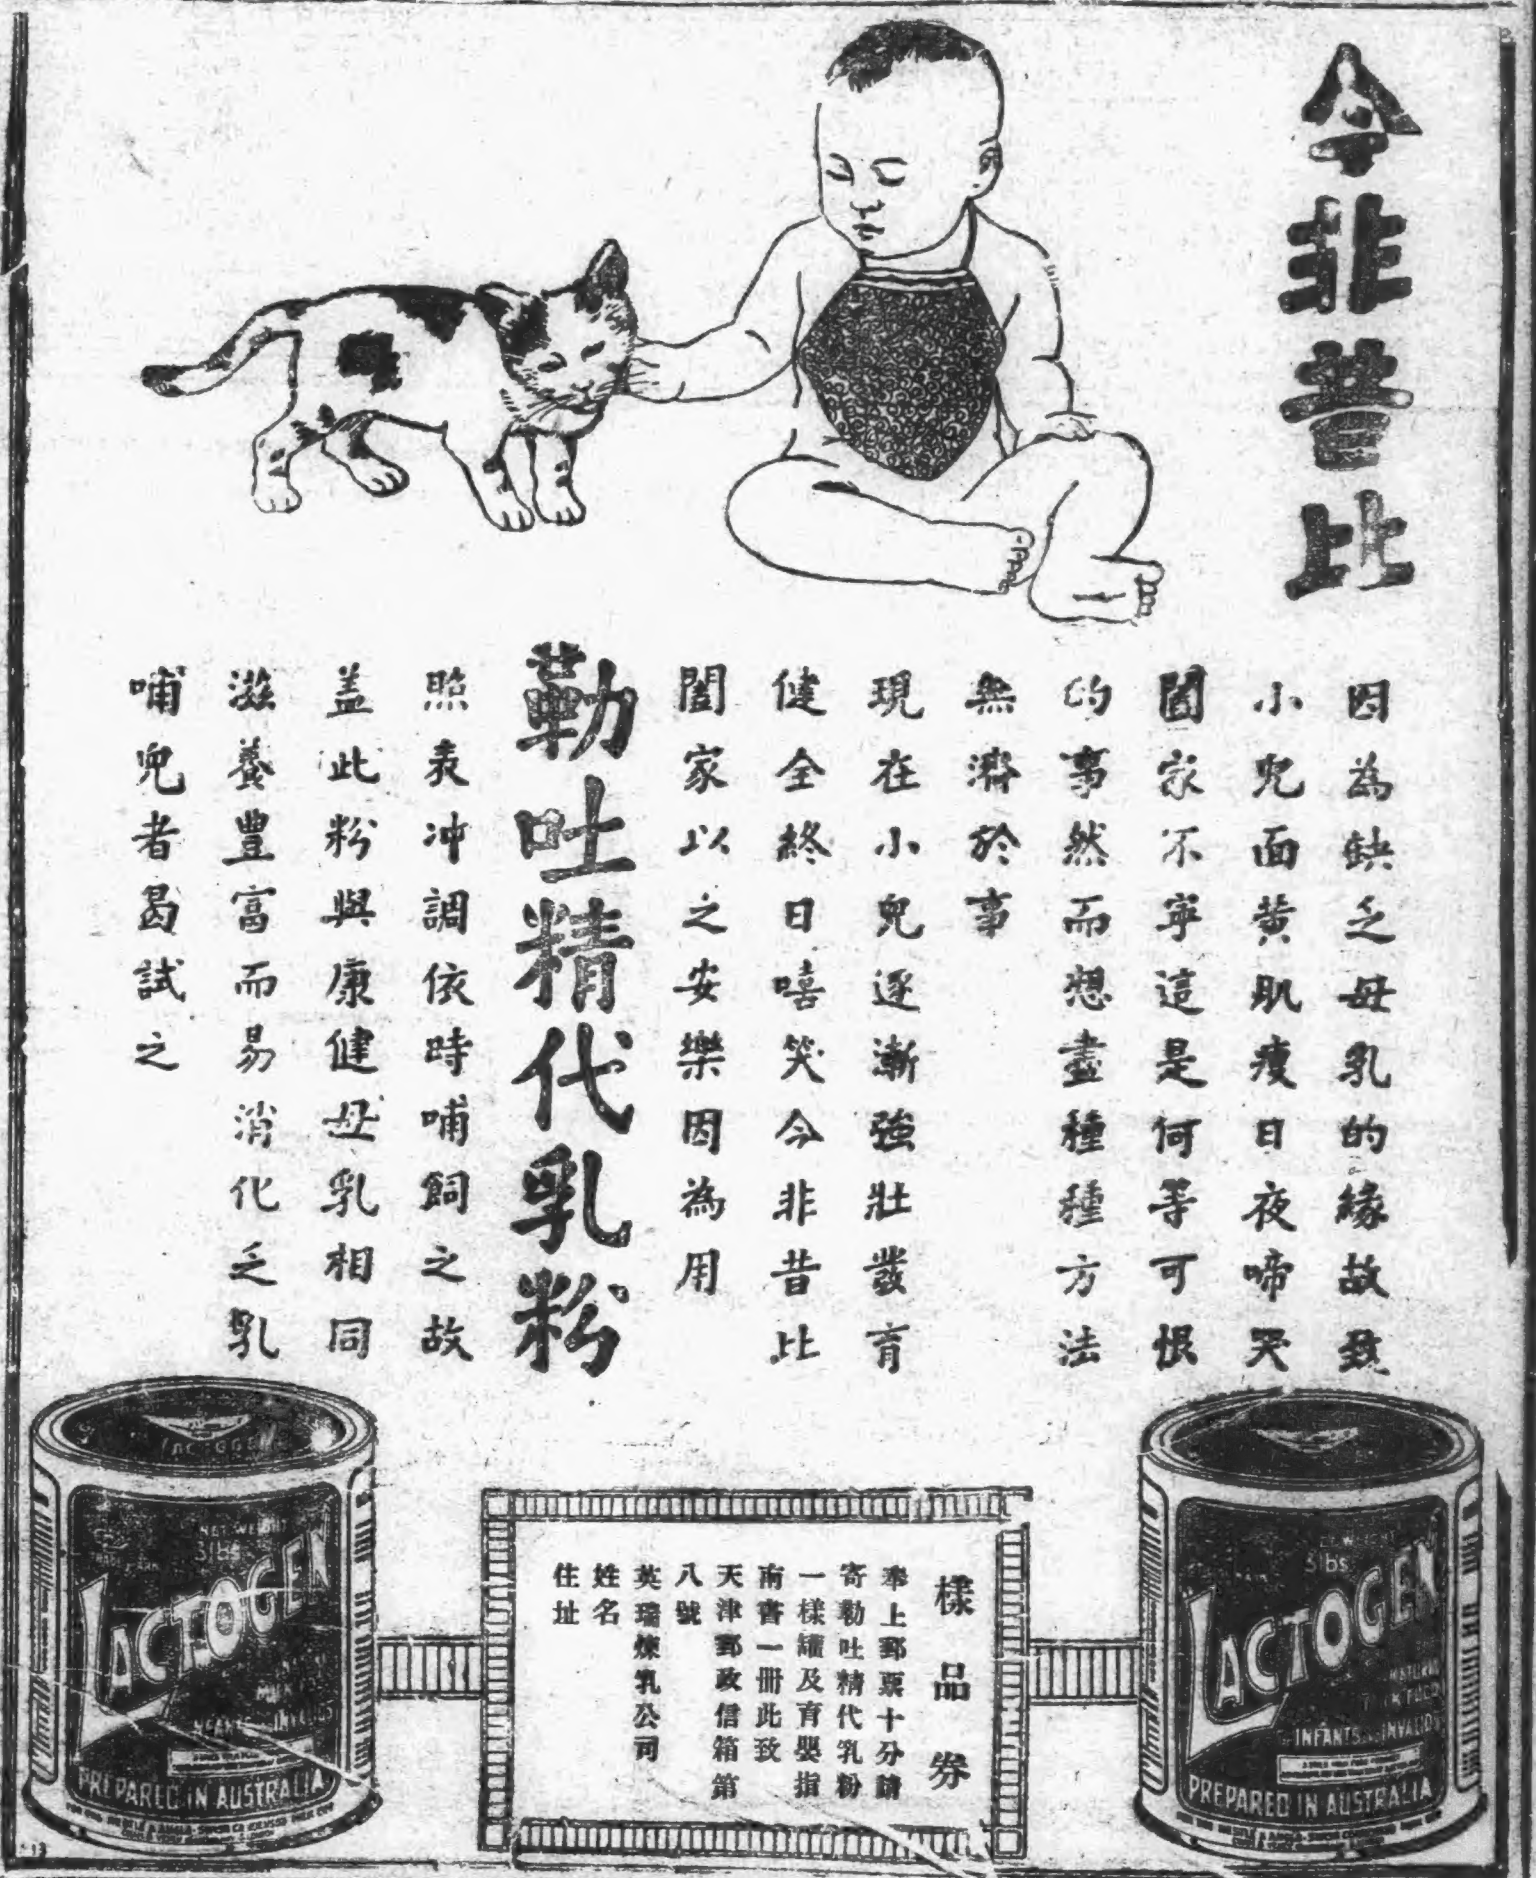 今非昔比
因為缺乏母乳的緣故致
小兒面黄肌瘦日夜啼哭
闔家不寧這是何等可恨
的事然而想盡種種方法
無濟於事
現在小兒逐漸強壯發育
健全終日嘻笑今非昔比
闔家以之安樂因為用
勒吐精代乳粉
照表冲調依時哺飼之故
盖此粉與康健母乳相同
滋養豐富而易消化乏乳
哺兒者曷試之
樣品券
奉上郵票十分請
寄勒吐精代乳粉
一樣罐及育嬰指
南書一冊此致
天津郵政信箱第
八號
英瑞煉乳公司
姓名
住址
LACTOGEN
NET WEIGHT
5 lbs
LACTOGEN
INFANTS INVALIDS
PREPARED IN AUSTRALIA
5 lbs
LACTOGEN
NATURAL
INFANTS INVALIDS
PREPARED IN AUSTRALIA